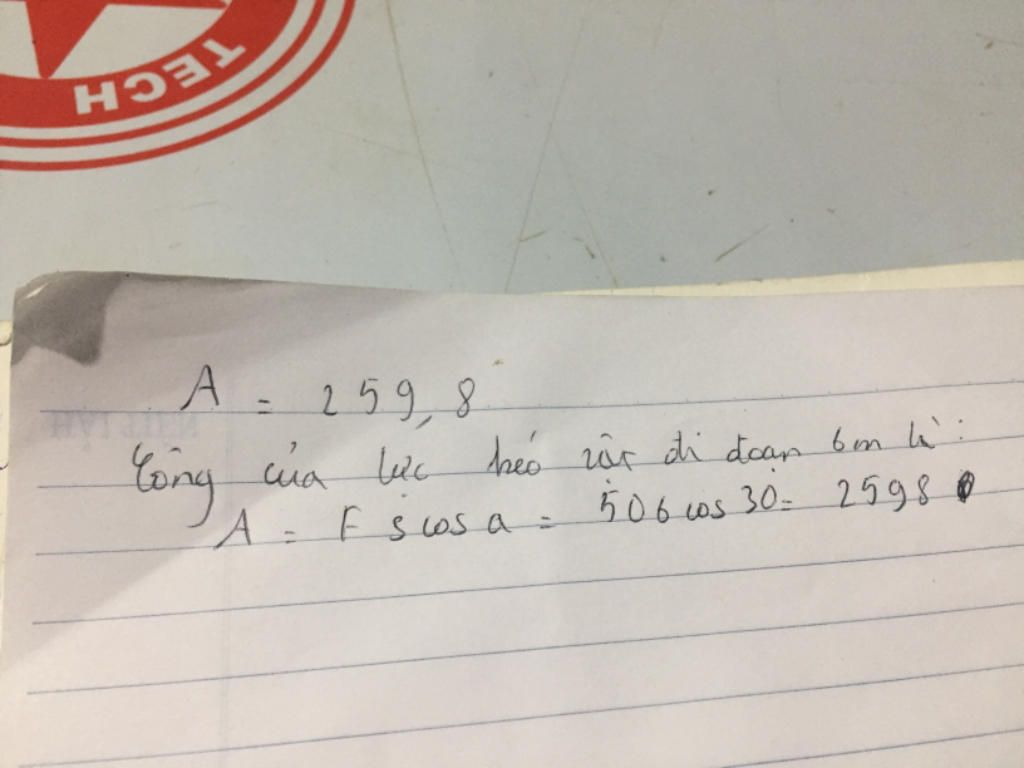 TECH
A = 259,8
Công của lực kéo vật đi đoạn 6m là:
A = F s cos a = 50 6 cos 30 = 2598